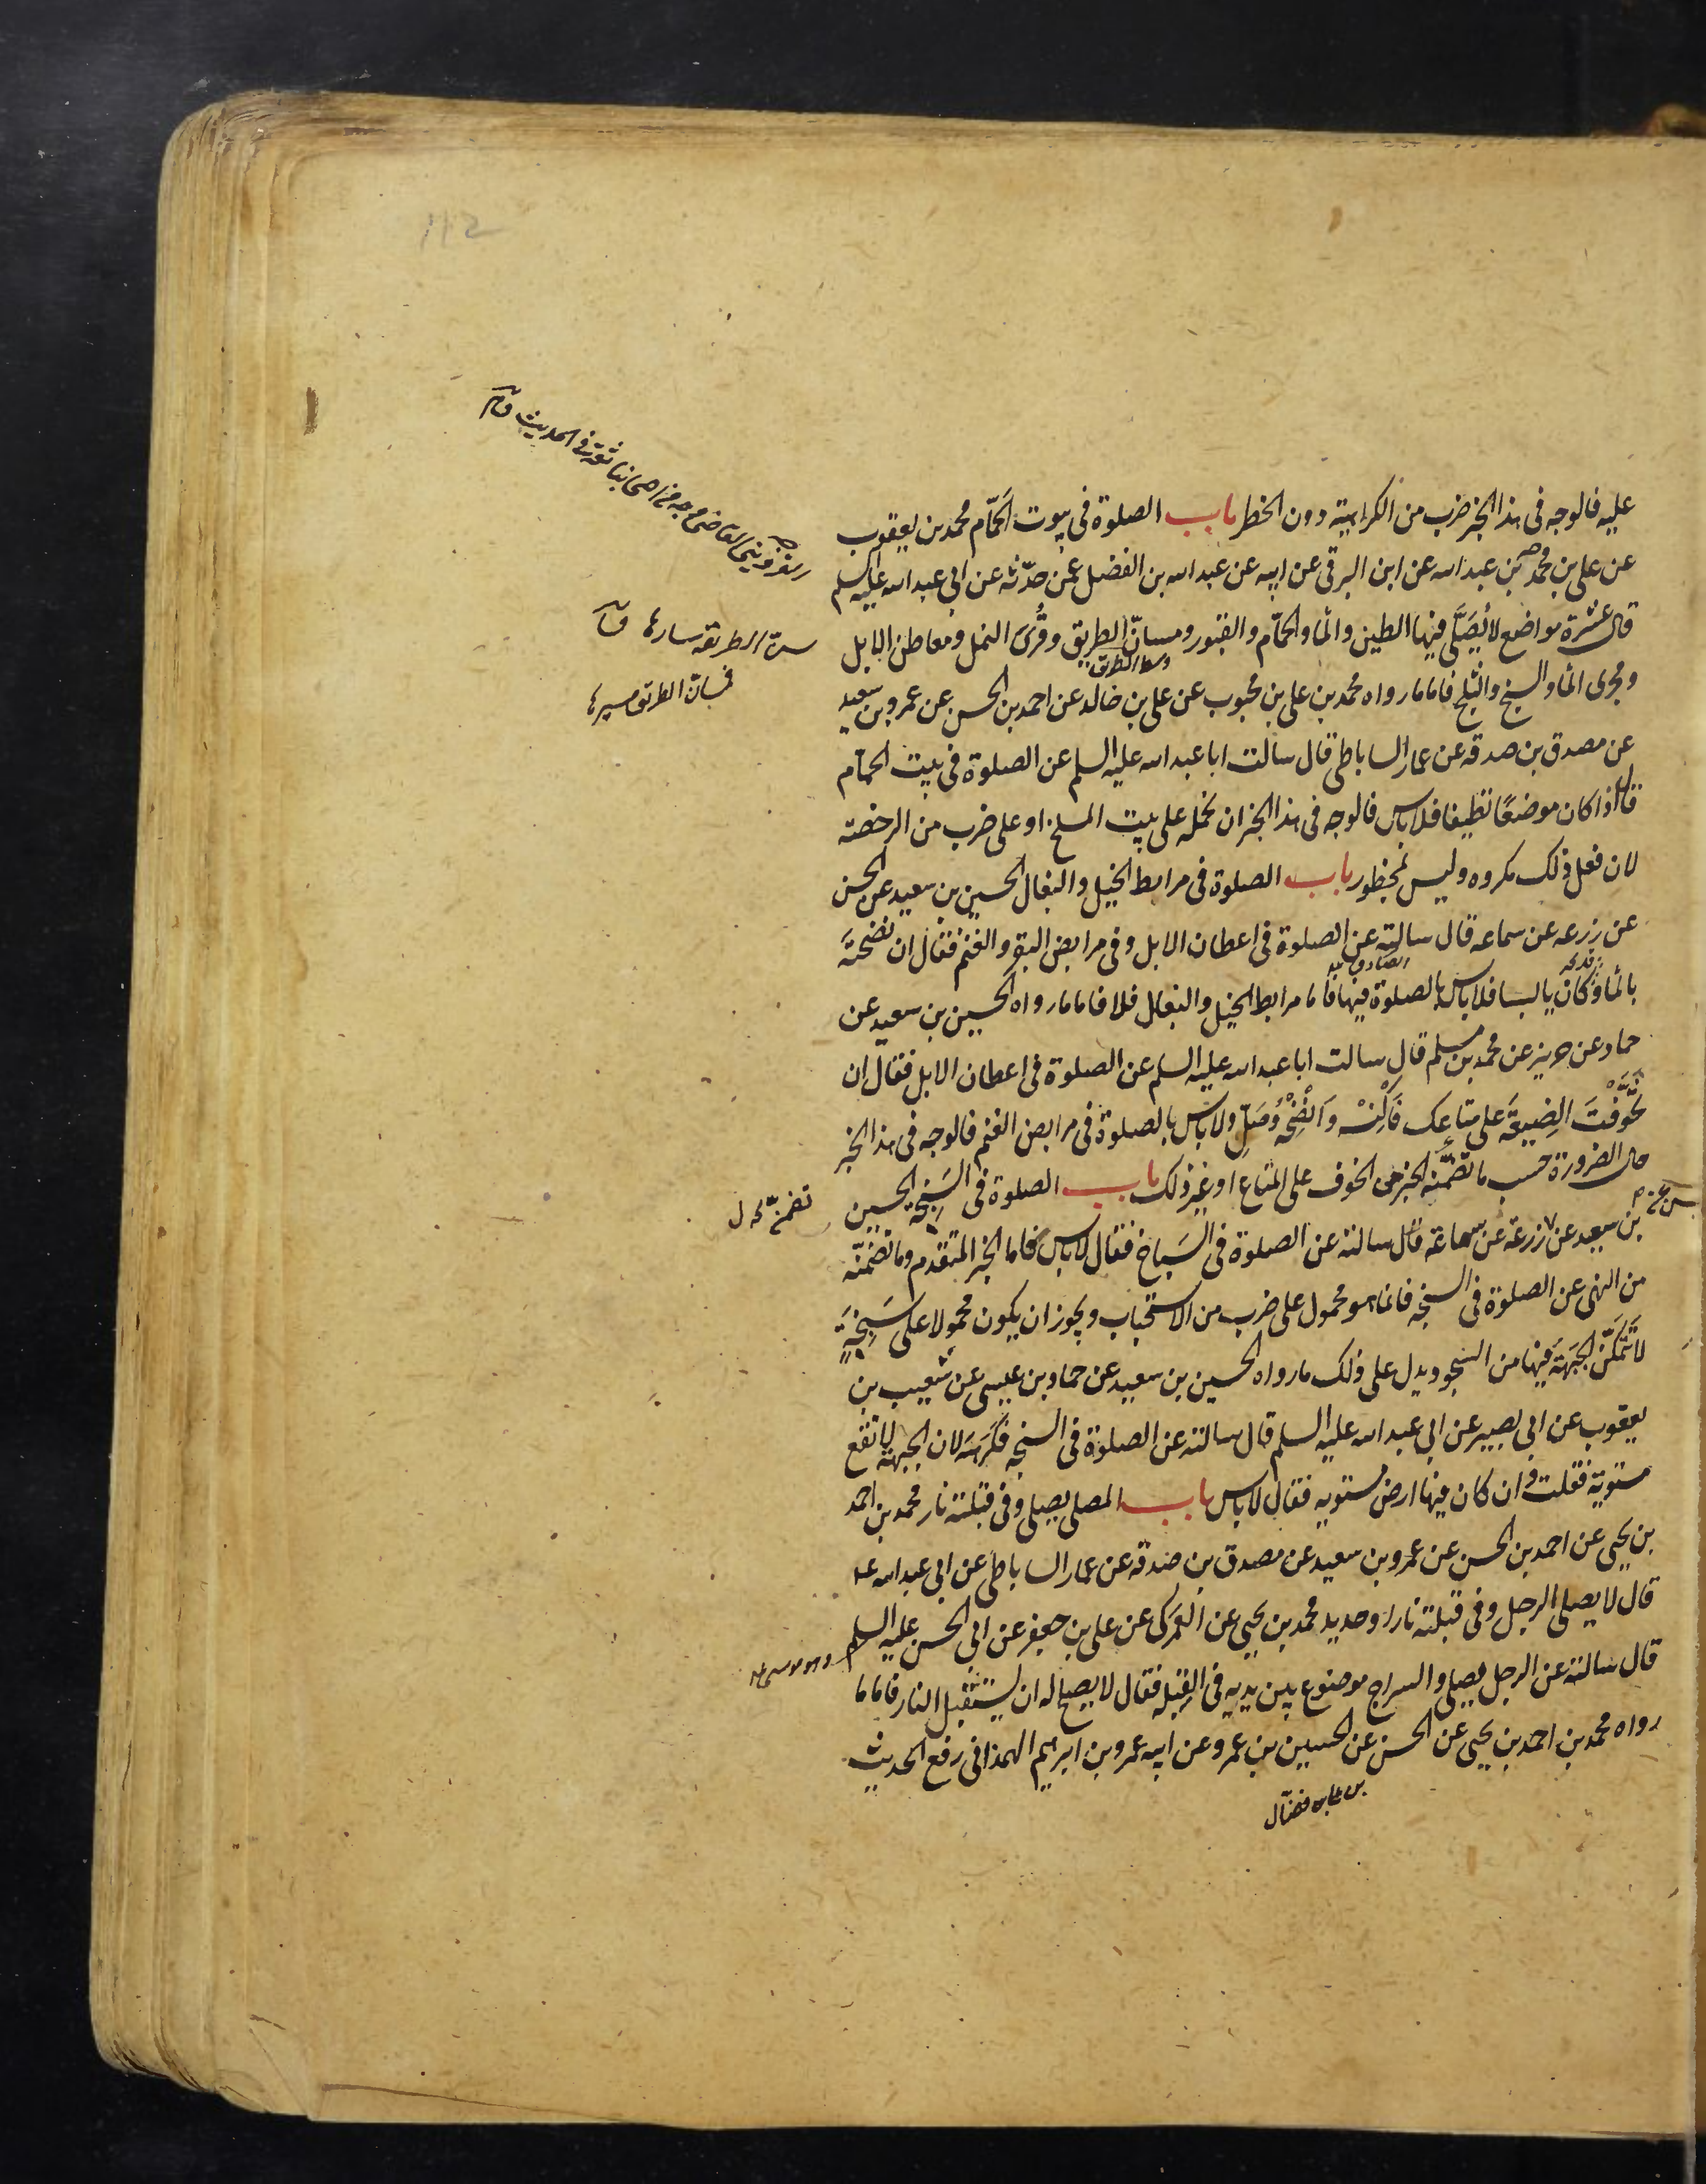 عليه فالوجه فى هذا الخبر ضرب من الكراهية دون الحظر باب الصلوة فى بيوت الحمّام محمد بن يعقوب
عن على بن محمد بن عبد الله عن ابن البرقى عن ابيه عن عبد الله بن الفضل عمن حدّثه عن ابى عبد الله عليه السلم
قال عشرة مواضع لا يُصَلَّى فيها الطين والمآ والحمّام والقبور ومسانّ الطريق وقُرَى النمل ومعاطن الابل
وسط الطريق
ومجرى المآ والسبخ والثلج فاما ما رواه محمد بن على بن محبوب عن على بن خالد عن احمد بن الحسن عن عمرو بن سعيد
عن مصدق بن صدقه عن عمار الساباطى قال سالت ابا عبد الله عليه السلم عن الصلوة فى بيت الحمّام
قال اذا كان موضعًا نظيفا فلا باس فالوجه فى هذا الخبر ان نحمله على بيت المسلخ او على ضرب من الرخصة
لان فعل ذلك مكروه وليس بمحظور باب الصلوة فى مرابط الخيل والبغال الحسين بن سعيد عن الحسن
عن زرعه عن سماعه قال سالته عن الصلوة فى اعطان الابل وفى مرابض البقر والغنم فقال ان نضحتَه
بالمآ وكان يابسا فلا باس بالصلوة فيها فاما مرابط الخيل والبغال فلا فاما ما رواه الحسين بن سعيد عن
حماد عن حريز عن محمد بن مسلم قال سالت ابا عبد الله عليه السلم عن الصلوة فى اعطان الابل فقال ان
تَخَوَّفْتَ الضِيعَةَ على متاعِك فَاكْنِسْه وَانْضِحْه وصَلِّ ولا باس بالصلوة فى مرابض الغنم فالوجه فى هذا الخبر
حال الضرورة حسب ما تضمّنه الخبر من الخوف على المتاع او غير ذلك باب الصلوة فى السَبِخَة الحسين
بن سعيد عن زرعة عن سماعة قال سالته عن الصلوة فى السَباخ فقال لا باس فاما الخبر المتقدم وما تضمّنه
من النهى عن الصلوة فى السبخه فانما هو محمول على ضرب من الاستحباب ويجوز ان يكون محمولا على سَبِخَةٍ
لا تَتَمَكَّن الجَبْهَة فيها من السجود ويدل على ذلك ما رواه الحسين بن سعيد عن حماد بن عيسى عن شعيب بن
يعقوب عن ابى بصير عن ابى عبد الله عليه السلم قال سالته عن الصلوة فى السبخه فكَرِهَه لان الجبهة لا تقع
مستوية فقلت وان كان فيها ارض مستويه فقال لا باس باب المصلى يصلى وفى قبلته نار محمد بن احمد
بن يحيى عن احمد بن الحسن عن عمرو بن سعيد عن مصدق بن صدقه عن عمار الساباطى عن ابى عبد الله عل
قال لا يصلى الرجل وفى قبلته نار او حديد محمد بن يحيى عن العَمركى عن على بن جعفر عن ابى الحسن عليه السلم
قال سالته عن الرجل يصلى والسراج موضوع بين يديه فى القبلة فقال لا يصلح له ان يستقبل النار فاما ما
رواه محمد بن احمد بن يحيى عن الحسن عن الحسين بن عمرو عن ابيه عمرو بن ابرهيم الهمذانى رفع الحديث
فمسانّ الطريق مسيرها